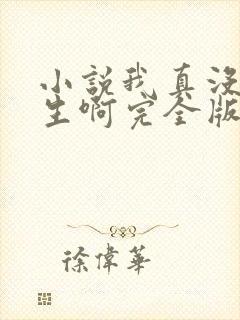 小說我真沒
生啊完全版
徐偉華